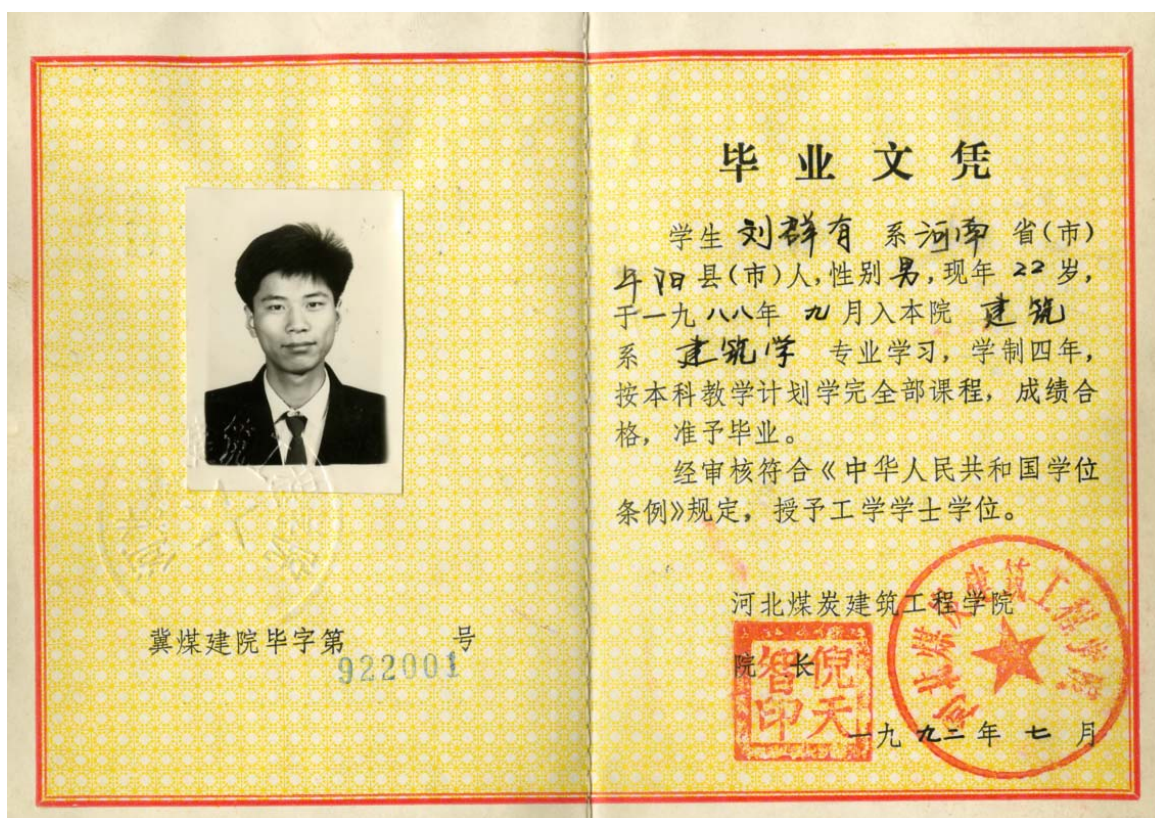 冀煤建院毕字第 号
922001
毕业文凭
学生 刘群有 系河南 省(市)
阳县(市)人,性别男,现年 22 岁,
于一九八八年 九月入本院 建筑
系 建筑学 专业学习,学制四年,
按本科教学计划学完全部课程,成绩合
格,准予毕业。
经审核符合《中华人民共和国学位
条例》规定,授予工学学士学位。
河北煤炭建筑工程学院
院 长
倪天智印
一九九二年 七 月
河北煤炭建筑工程学院